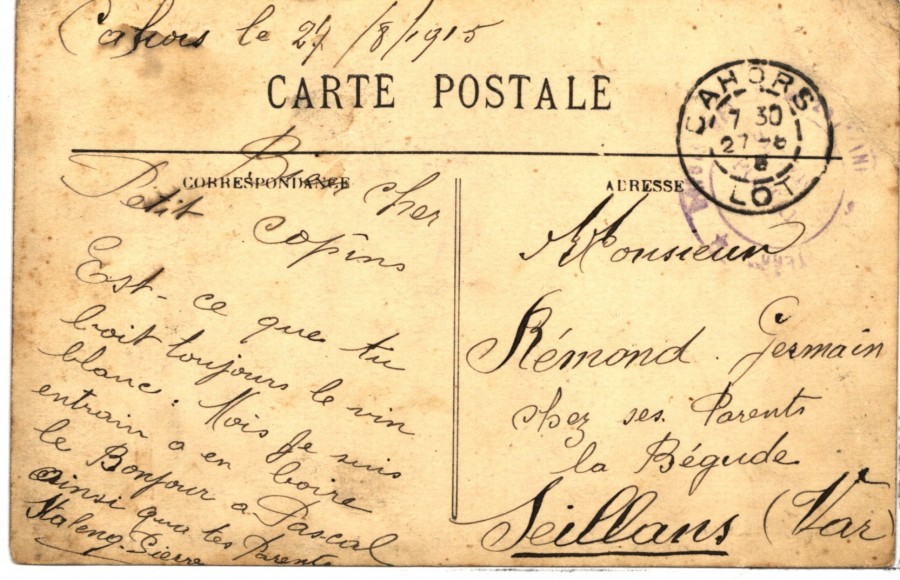 Cahors le 27/8/1915
CARTE POSTALE
CAHORS
7 30
27 -8
LOT
CORRESPONDANCE
ADRESSE
Bien cher
Petit copins
Est-ce que tu
boit toujours le vin
blanc. Mois je suis
entrain a en boire
le Bonjour a Pascal
ainsi qua tes Parents
Pierre
Monsieur
Rémond Germain
chez ses Parents
la Bégude
Seillans (Var)